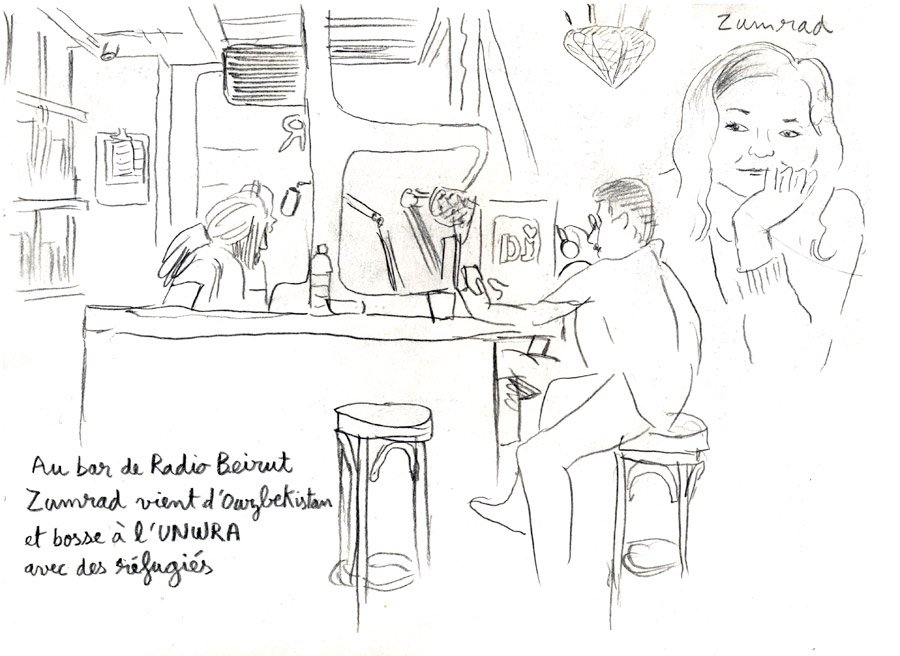 Zumrad
DJ
Au bar de Radio Beirut
Zumrad vient d'Ouzbekistan
et bosse à l'UNWRA
avec des réfugiés